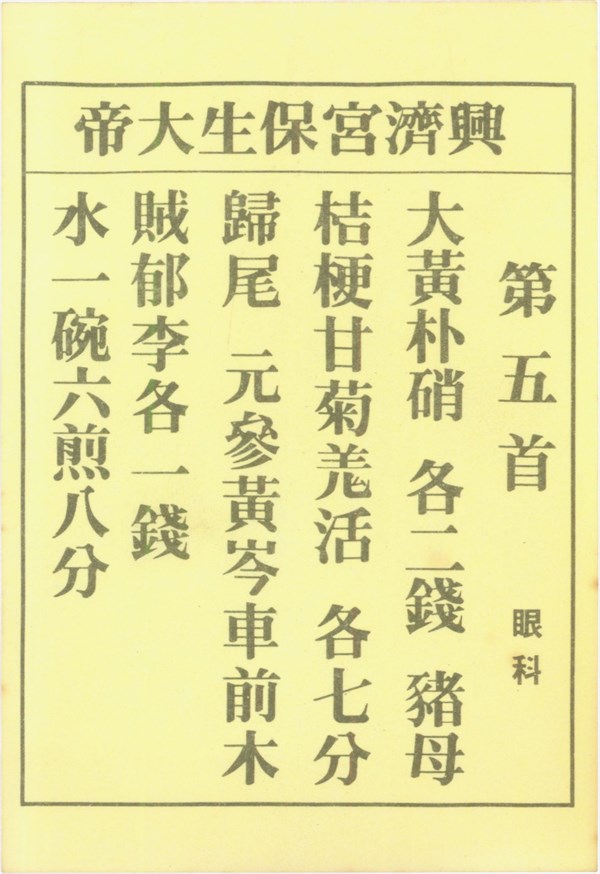 興濟宮保生大帝
第五首 眼科
大黃朴硝 各二錢 豬母
桔梗甘菊羌活 各七分
歸尾 元參黃岑車前木
賊郁李各一錢
水一碗六煎八分